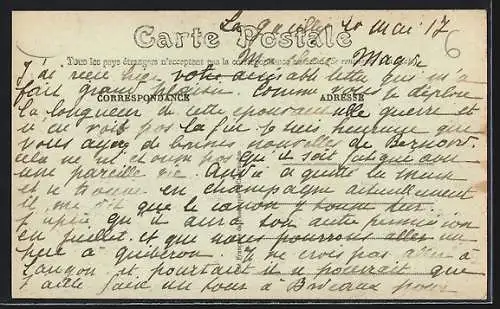 La 10 Mai 17
Carte Postale
Tous les pays étrangers n'acceptent pas la correspondance au
J'ai reçu hier votre aimable lettre qui m'a
fait grand plaisir. Comme vous je déplore
CORRESPONDANCE ADRESSE
la longueur de cette épouvantable guerre et
n'en vois pas la fin. Je suis heureuse que
vous ayez de bonnes nouvelles de
cela ne m'étonne pas qu'il soit fatigué avec
une pareille vie. André a quitté la
et se trouve en champagne actuellement
il me dit que le canon y tonne dur.
J'espère qu'il aura son autre permission
en juillet et que nous pourrons aller un
peu à Quiberon. Je ne crois pas aller à
Langon et pourtant il se pourrait que
j'aille faire un tour à Bordeaux pour